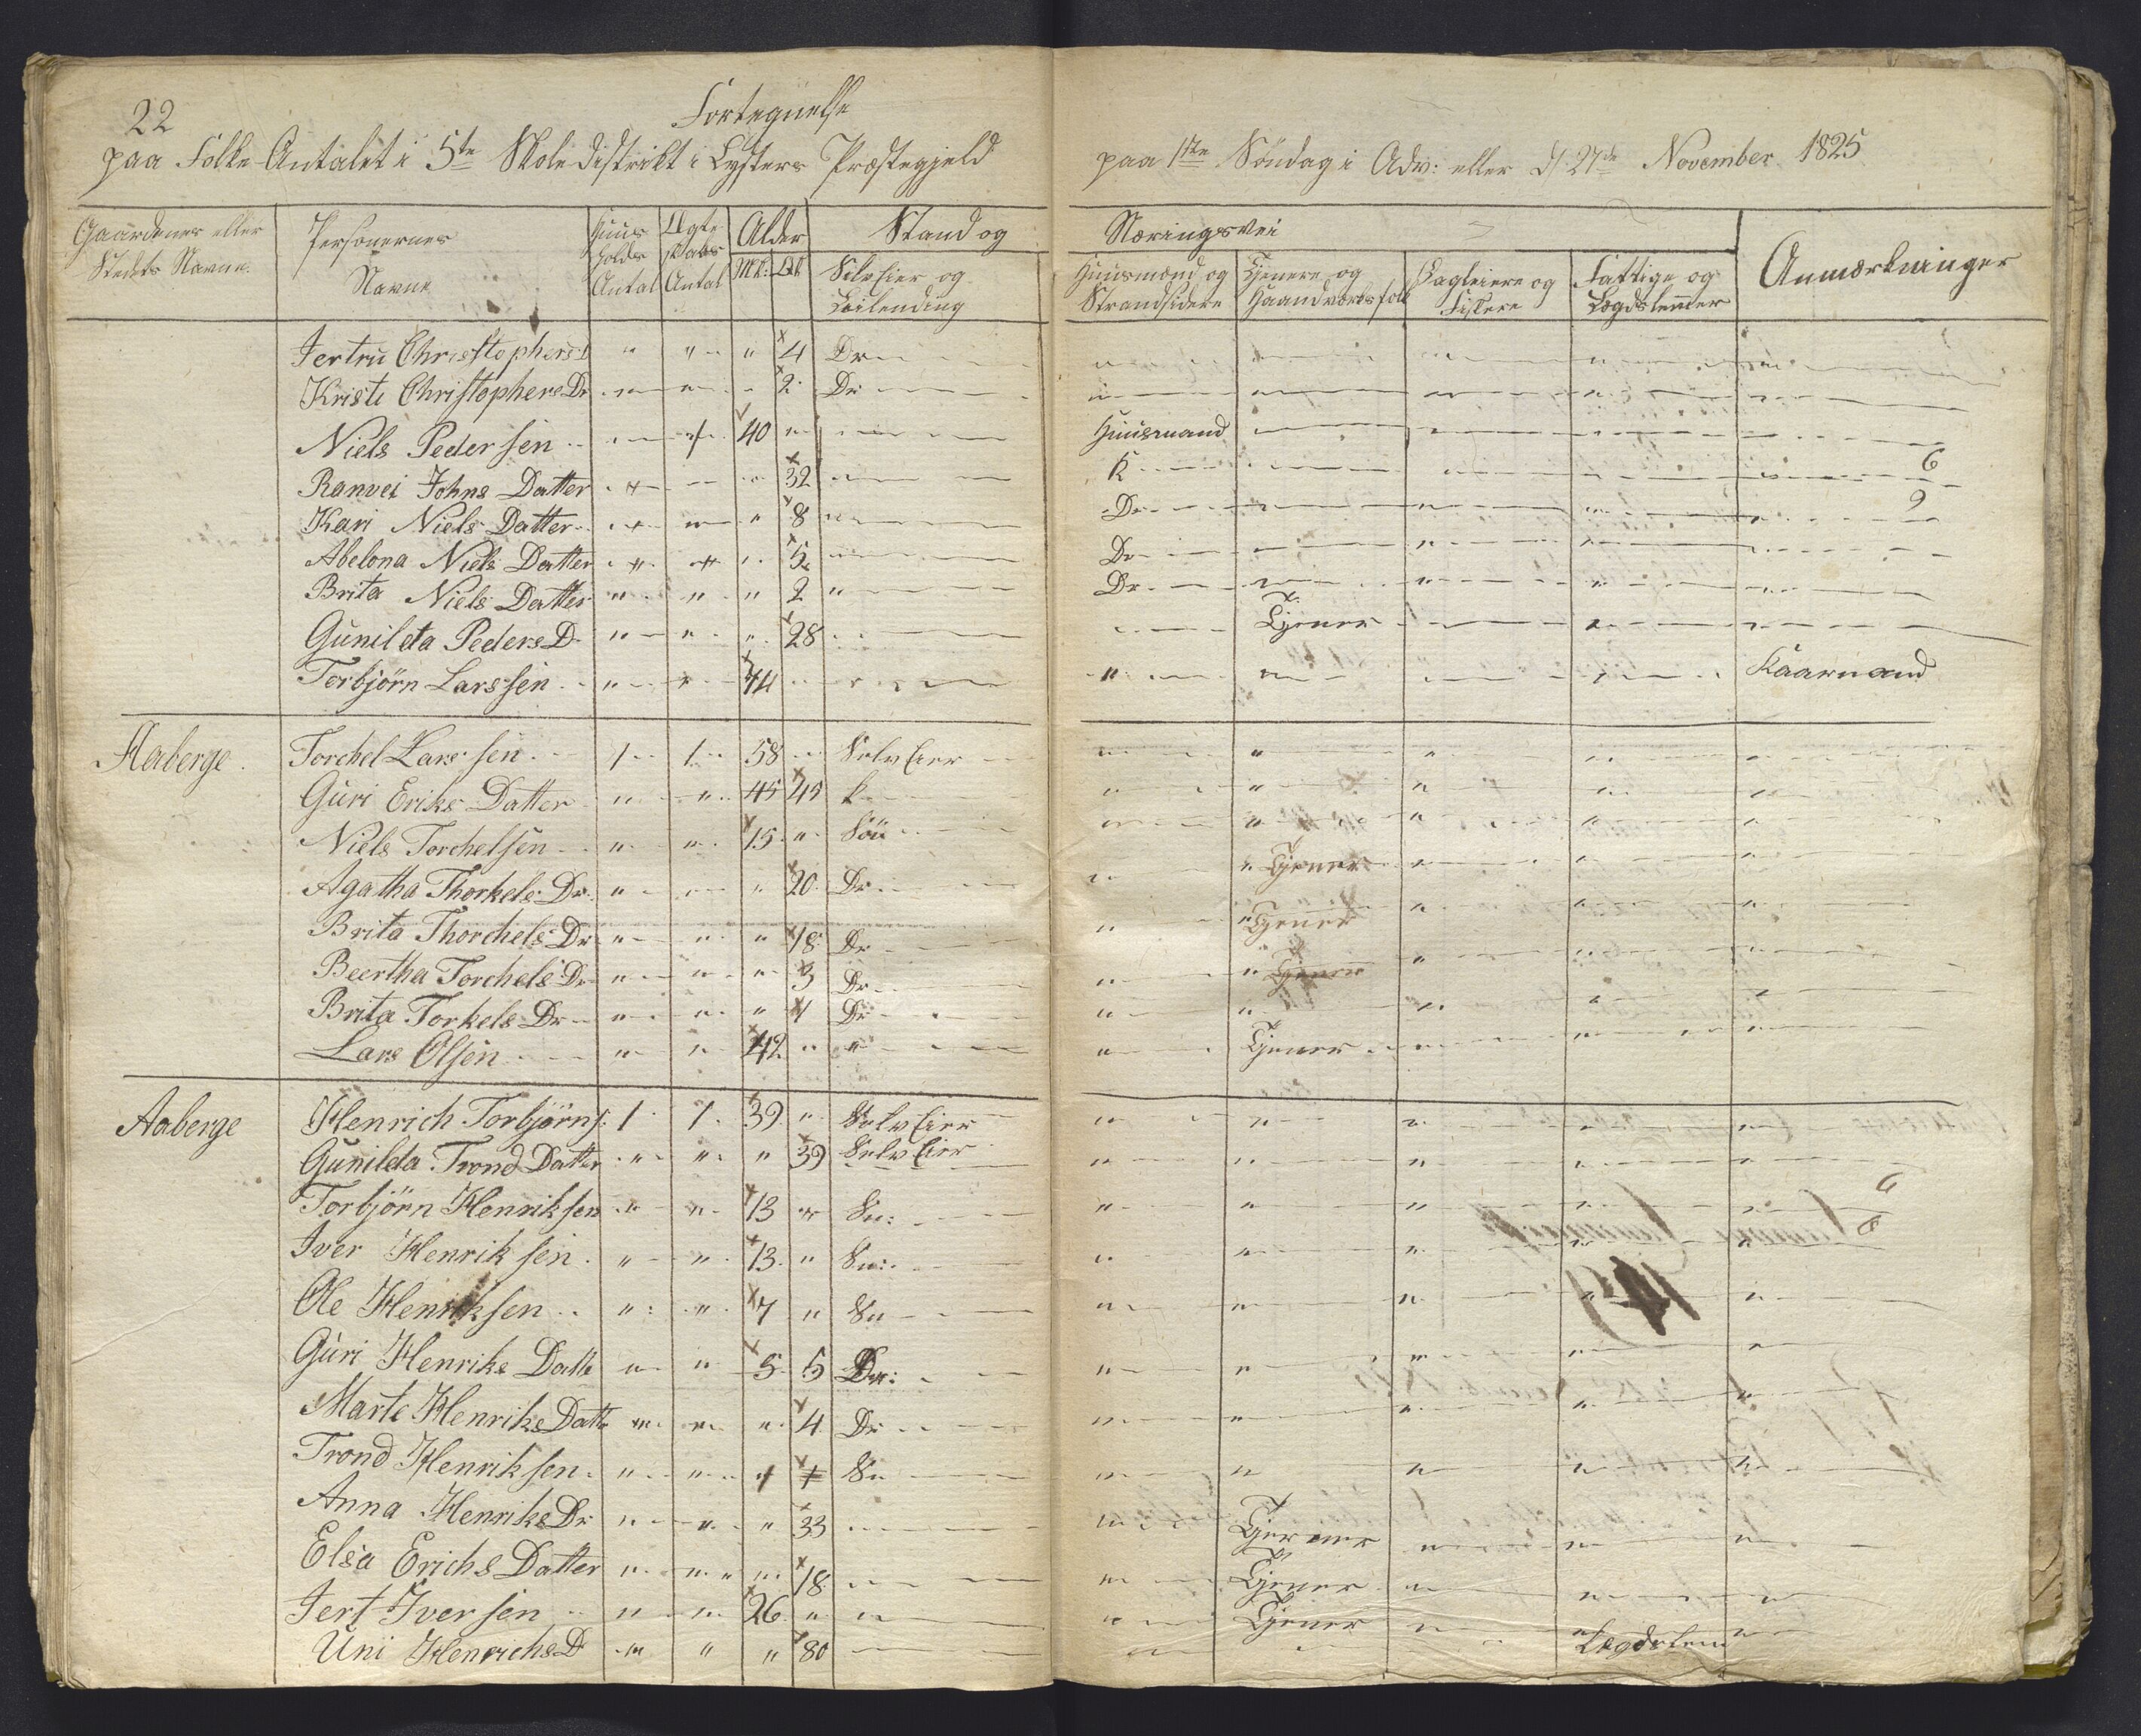 22
Fortegnelse
paa Folke-Antalet i 5te Skoledistrikt i Lysters Præstegjeld paa 1ste Søndag i Adv: eller d/ 27de November 1825
Gaardenes eller Stedets Navne. Personernes Navne Huusholds Antal Ægteskabs Antal Alder Mk: Qk Stand og Næringsvei
SelvEier og Leilending Huusmænd og Strandsidere Tjenere og Haandværksfolk Dagleiere og Fiskere Fattige og Lægdslemmer Anmærkninger
Jertru Christophers D " " " 4 Dr
Kristi Christophers Dr " " " 2 Dr
Niels Pedersen " 1 40 " Huusmand
Ranvei Johns Datter " " " 32 K 6
Kari Niels Datter " " " 8 Dr 2
Abelona Niels Datter " " " 5 Dr
Brita Niels Datter " " " 2 " Dr
Gunilda Peders D " " " 28 Tjener
Torbjörn Larssen " " 74 Kaarmand
Aaberge Torchel Larssen 1 1 58 " SelvEier
Guri Eriks Datter " " 45 45 k
Niels Torchelsen " " 15 " Sön
Agatha Thorkels Dr " " " 20 Dr Tjener
Brita Thorchels Dr " " " 18 Dr Tjener
Beertha Torchels Dr " " " 3 Dr Tjener
Brita Torkels Dr " " " 1 Dr
Lars Olsen " " 42 " " Tjener
Aaberge Henrich Torbjörns: 1 1 39 " SelvEier
Gunilda Trond Datter " " " 39 SelvEier
Torbjörn Henriksen " " 13 " Sn:
Iver Henriksen " " 13 " Sn:
Ole Henriksen " " 7 " Sn
Guri Henriks Datte " " 5 5 Dr:
Marte Henriks Datte " " " 4 Dr
Trond Henriksen " " 1 Sn
Anna Henriks Dr " " " 33 Tjener
Elsa Erichs Datter " " " 18 Tjener
Jert Iversen " " 26 " " Tjener
Uni Henrichs D " " " 80 Lægdslem